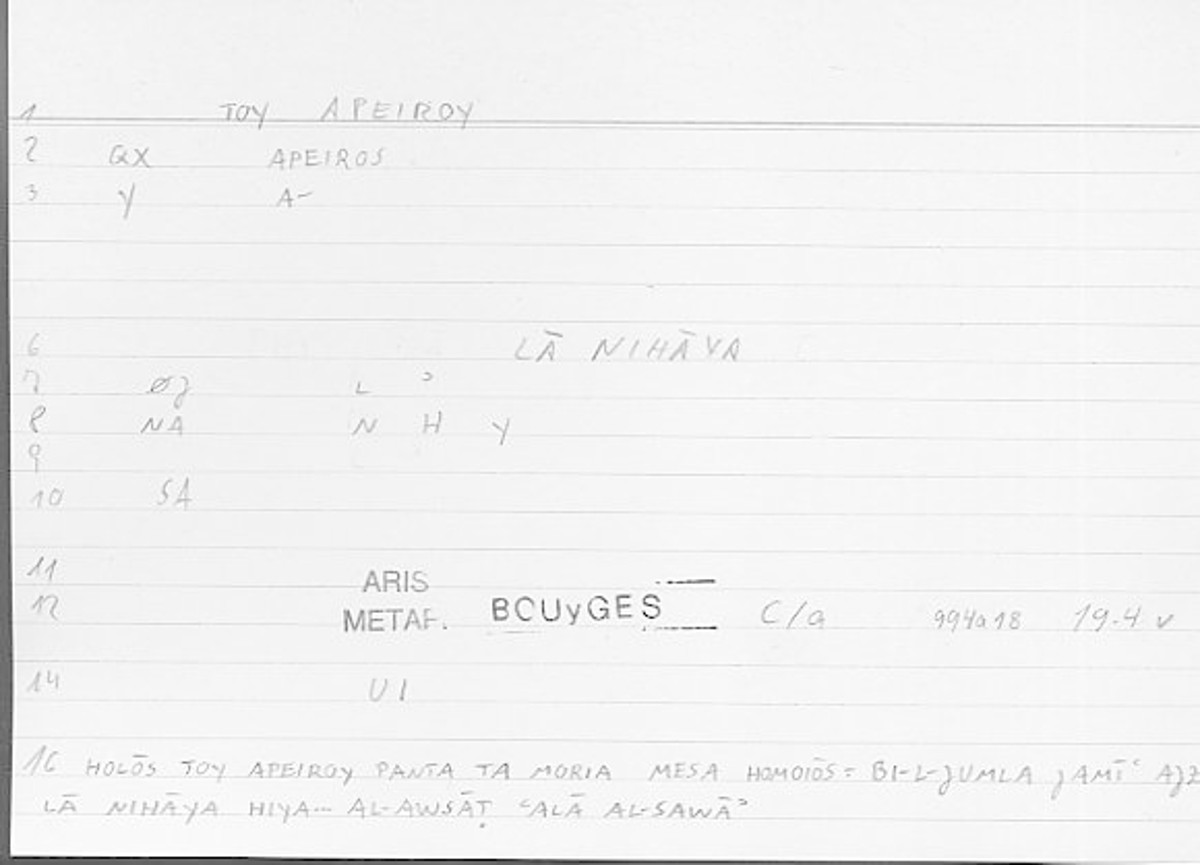 1 TOY APEIROY
2 QX APEIROS
3 Y A-
6 LĀ NIHĀYA
7 ØJ L ʾ
8 NA N H Y
9
10 SA
11 ARIS
12 METAF. BOUyGES C/a 994a18 19.4 v
14 UI
16 HOLŌS TOY APEIROY PANTA TA MORIA MESA HOMOIŌS = BI-L-JUMLA JAMĪʿ AJZ
LĀ NIHĀYA HIYA... AL-AWSĀṬ ʿALĀ AL-SAWĀʾ